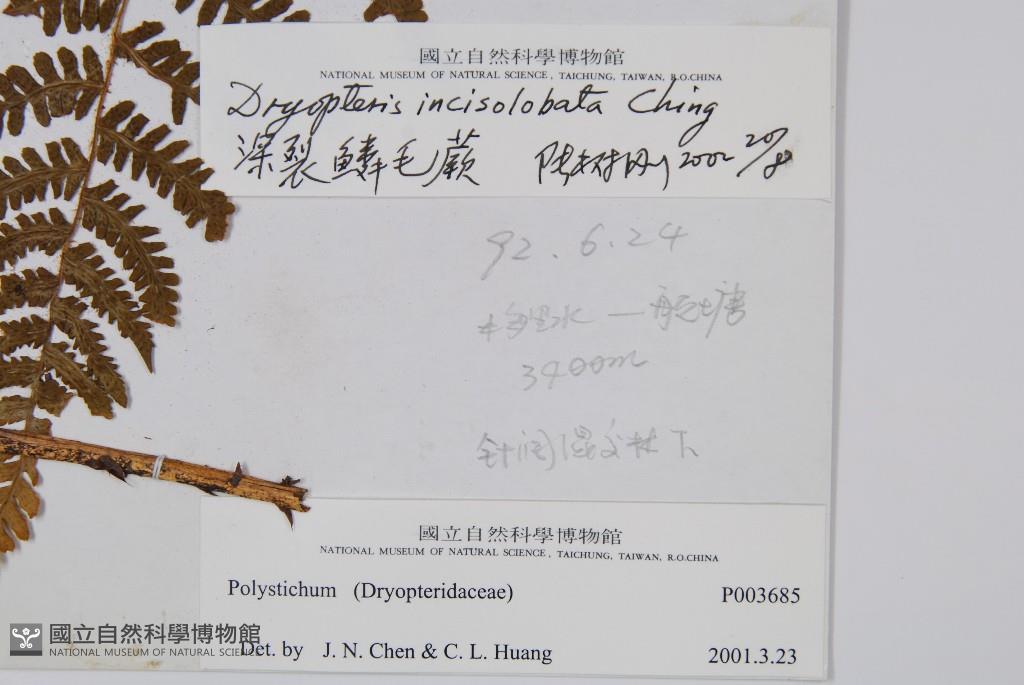 國立自然科學博物館
NATIONAL MUSEUM OF NATURAL SCIENCE, TAICHUNG, TAIWAN, R.O.CHINA
Dryopteris incisolobata Ching
深裂鱗毛蕨 2002 20/8
92.6.24
3400m
针阔混交林下
國立自然科學博物館
NATIONAL MUSEUM OF NATURAL SCIENCE, TAICHUNG, TAIWAN, R.O.CHINA
Polystichum (Dryopteridaceae) P003685
Det. by J. N. Chen & C. L. Huang 2001.3.23
國立自然科學博物館
NATIONAL MUSEUM OF NATURAL SCIENCE